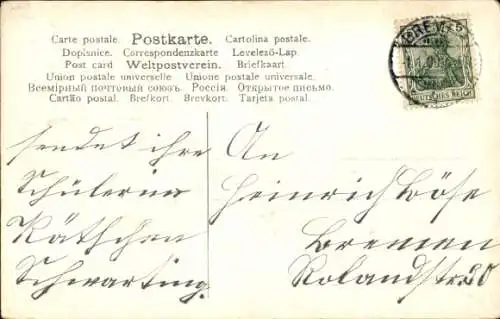 Carte postale. Postkarte. Cartolina postale.
Dopisnice. Correspondenzkarte Levelező-Lap.
Post card Weltpostverein. Briefkaart.
Union postale universelle Unione postale universale.
Всемірный почтовый союзъ. Россія. Открытое письмо.
Cartão postal. Brefkort. Brevkort. Tarjeta postal.
BREMEN
DEUTSCHES REICH
sendet ihre
Schülerin
Käthchen
Schwarting.
An
Heinrich Böse
Bremen
Rolandstr.